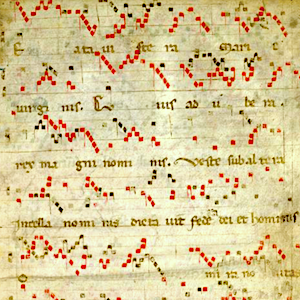 ata vi sce ra Mari
virginis. E ius ad u be ra
rex ma gni nomi nis. Veste sub al te ra
nomi nis dicta vit fede dei et hominis
mi ra no vita